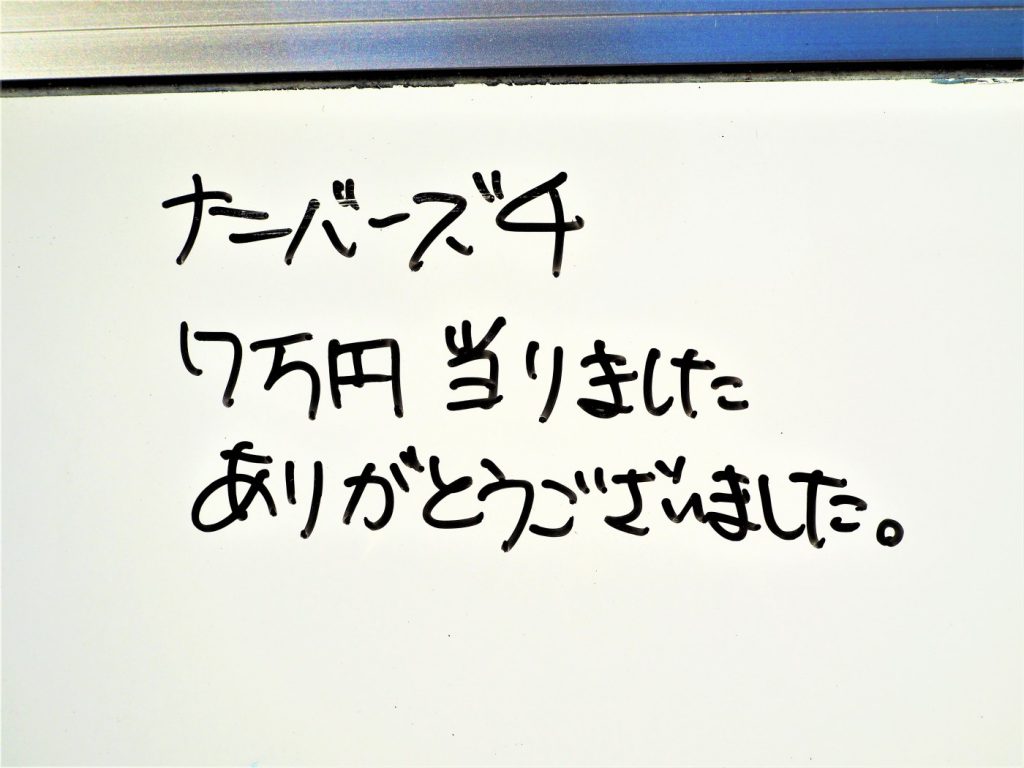 ナンバーズ4
7万円 当りました
ありがとうございました。